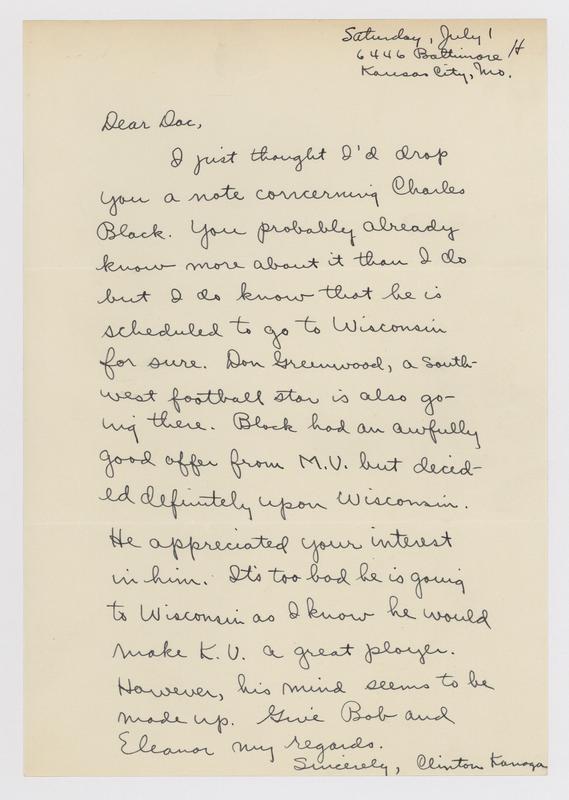 Saturday, July 1
6446 Baltimore
Kansas City, Mo.
Dear Doc,
I just thought I'd drop
you a note concerning Charles
Black. You probably already
know more about it than I do
but I do know that he is
scheduled to go to Wisconsin
for sure. Don Greenwood, a South-
west football star is also go-
ing there. Black had an awfully
good offer from M.U. but decid-
ed definitely upon Wisconsin.
He appreciated your interest
in him. It's too bad he is going
to Wisconsin as I know he would
make K.U. a great player.
However, his mind seems to be
made up. Give Bob and
Eleanor my regards.
Sincerely, Clinton Kanaga